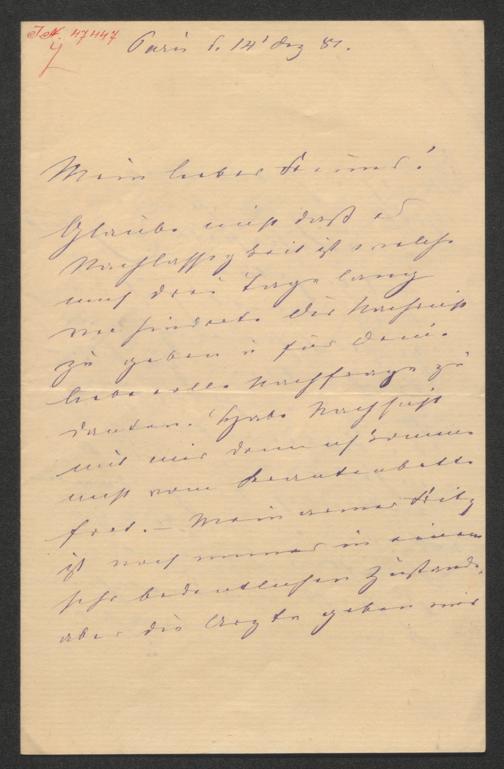 J.N. 47447
Paris d. 14' Dez 81.
Mein lieber Freund!
Glaube nicht daß es
Nachlässigkeit ist welche
mich drei Tage lang
verhinderte Dir Nachricht
zu geben u für Deine
liebevolle Nachfrage zu
danken. Habe Nachsicht
mit mir denn ich komme
nicht vom Krankenbette
fort. — Mein armer
ist noch immer in einem
sehr bedenklichen Zustande,
aber die Ärzte geben mir